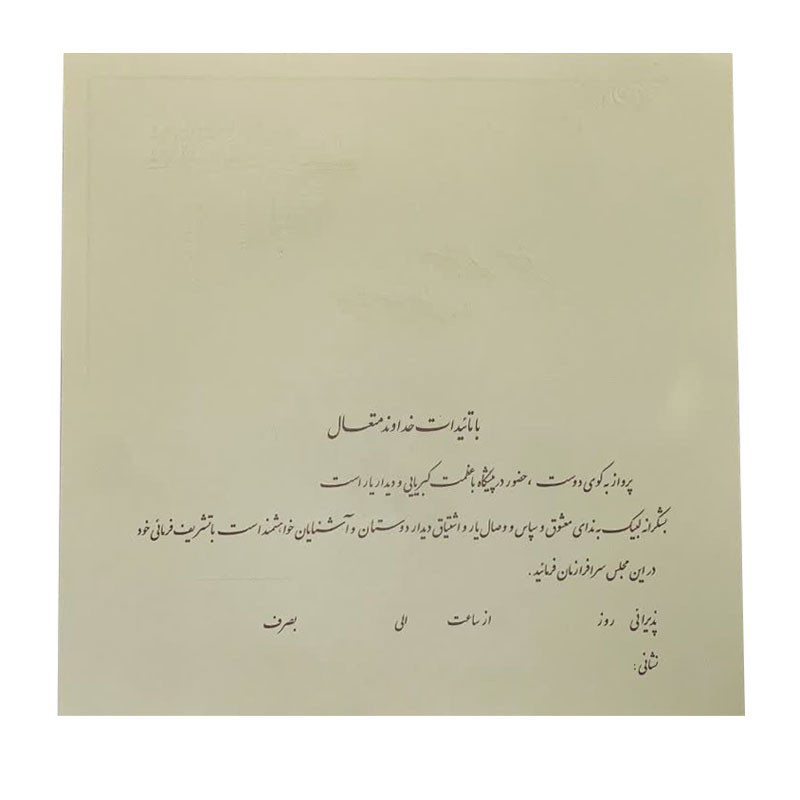 با تائیدات خداوند متعال
پرواز به کوی دوست، حضور در پیشگاه با عظمت کبریایی و دیدار یار است
بشکرانه لبیک به ندای معشوق و سپاس و وصال یار و اشتیاق دیدار دوستان و آشنایان خواهشمند است با تشریف فرمائی خود
در این مجلس سرافرازمان فرمائید.
پذیرائی روز از ساعت الی بصرف
نشانی: